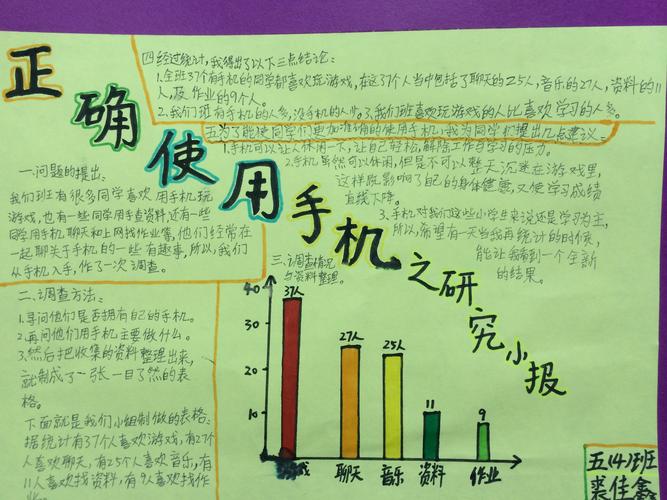 正确使用手机之研究小报
一.问题的提出:
我们班有很多同学喜欢用手机玩
游戏,也有一些同学用手查资料,还有一些
同学用手机聊天和上网找作业等,他们经常在
一起聊关于手机的一些有趣事,所以,我们
从手机入手,作了一次调查。
二、调查方法:
1.寻问他们是否拥有自己的手机。
2.再问他们用手机主要做什么。
3.然后把收集的资料整理出来,
就制成了一张一目了然的表
格。
下面就是我们小组制做的表格:
据统计有37个人喜欢游戏,有27
个人喜欢聊天,有25个人喜欢音乐,有
11人喜欢找资料,有9人喜欢找作
业。
三.调查情况
与资料整理。
40
30
20
10
0
37人
27人
25人
11
9
游戏
聊天
音乐
资料
作业
四经过统计,我得出了以下三点结论:
1.全班37个有手机的同学都喜欢玩游戏,在这37个人当中包括了聊天的25人,音乐的27人,资料的11
人,及作业的9个人。
2.我们班有手机的人多,没手机的人少。3.我们班喜欢玩游戏的人比喜欢学习的人多。
五为了能使同学们更加准确的使用手机,我为同学们提出几点建议:
1.手机可以让人休闲一下,让自己轻松,解除工作与学习的压力。
2.手机虽然可以休闲,但是不可以整天沉迷在游戏里,
这样既影响了自己的身体健康,又使学习成绩
直线下降。
3.手机对我们这些小学生来说还是学习为主,
所以,希望有一天当我再统计的时候,
能让我看到一个全新
的结果。
五(4)班
裘佳鑫